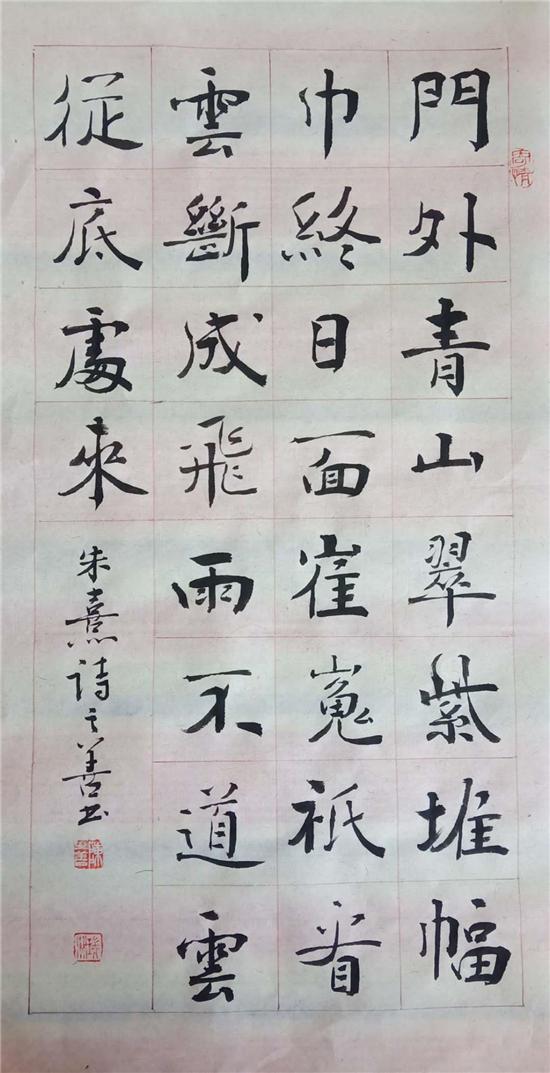 門外青山翠紫堆幅
巾終日面崔嵬祇看
雲斷成飛雨不道雲
從底處來
朱熹詩之善书